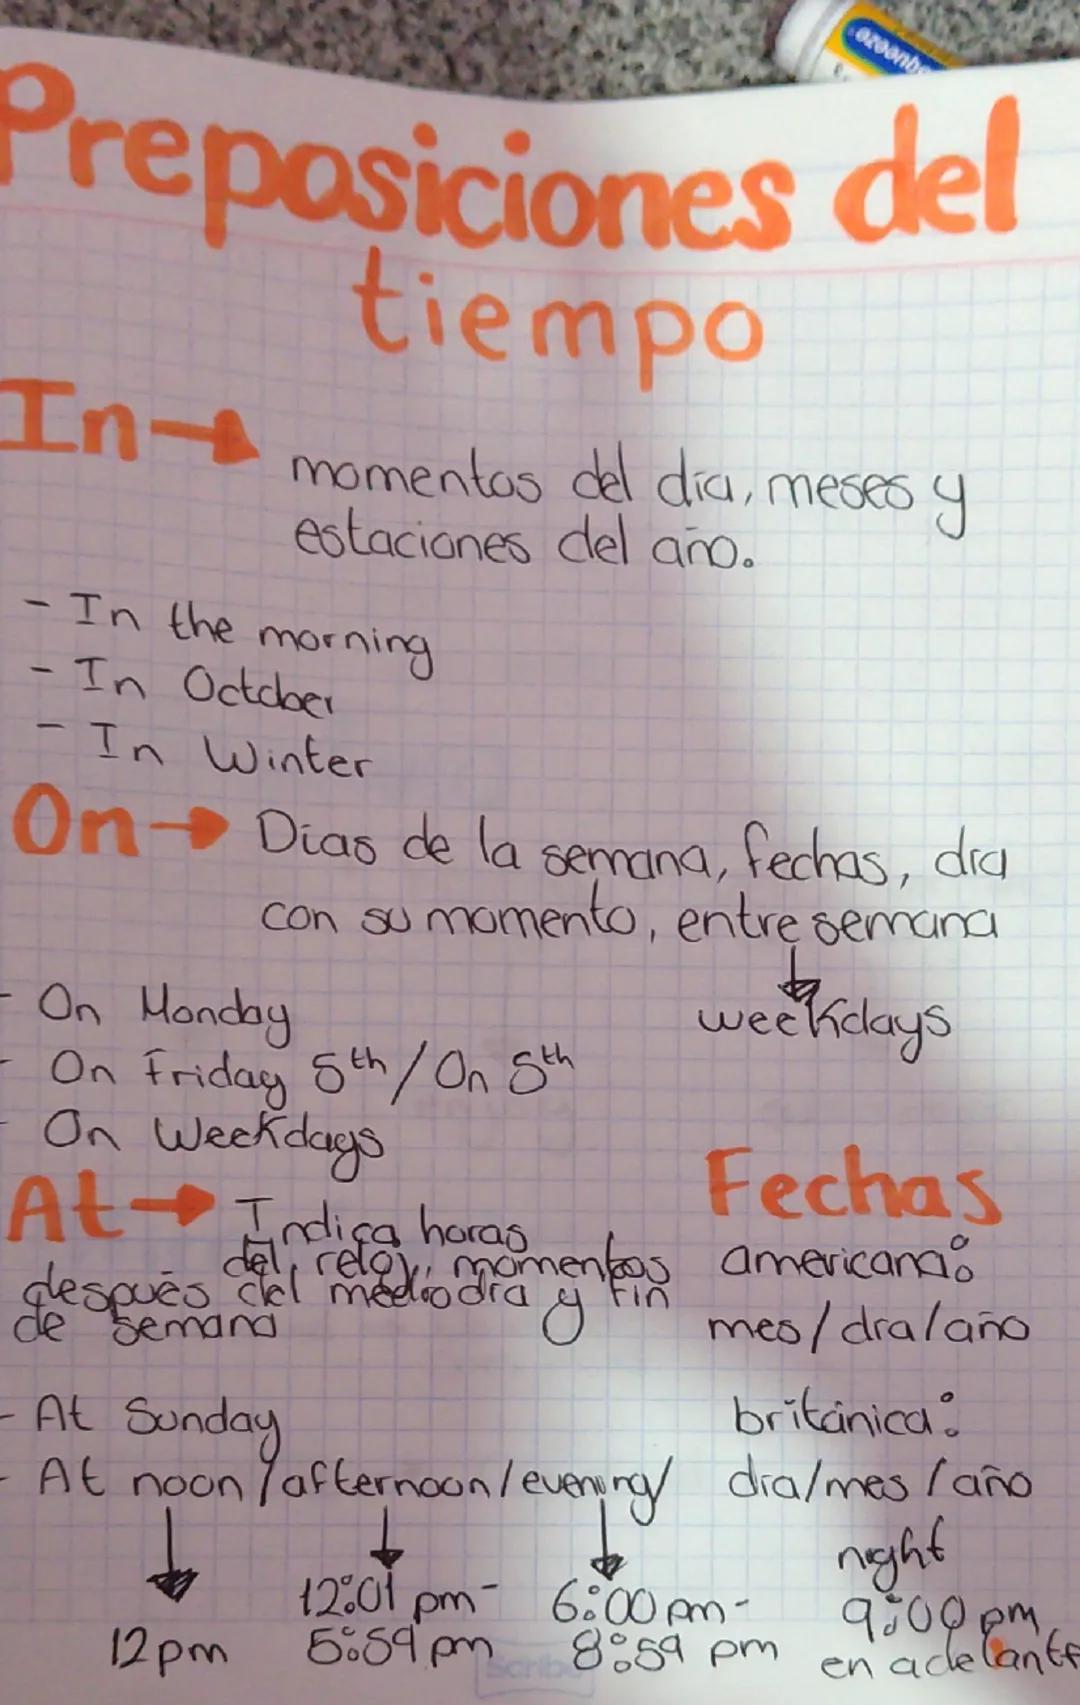 Preposiciones del
tiempo
In→
momentos del día, meses y
estaciones del año.
- In the morning
- In October
- In Winter
On→ Dias de la semana, fechas, día
con su momento, entre semana
weekdays
- On Monday
- On Friday 5th/On 5th
- On Weekdays
At→ Indica horas
del reloj, momentos
después del mediodía y fin
de semana
Fechas
americana:
mes/día/año
británica:
día/mes/año
- At Sunday
- At noon/afternoon/evening/
night
12pm
12:01 pm-
5:59 pm
6:00 pm-
8:59 pm
9:00 pm
en adelante
Scribe